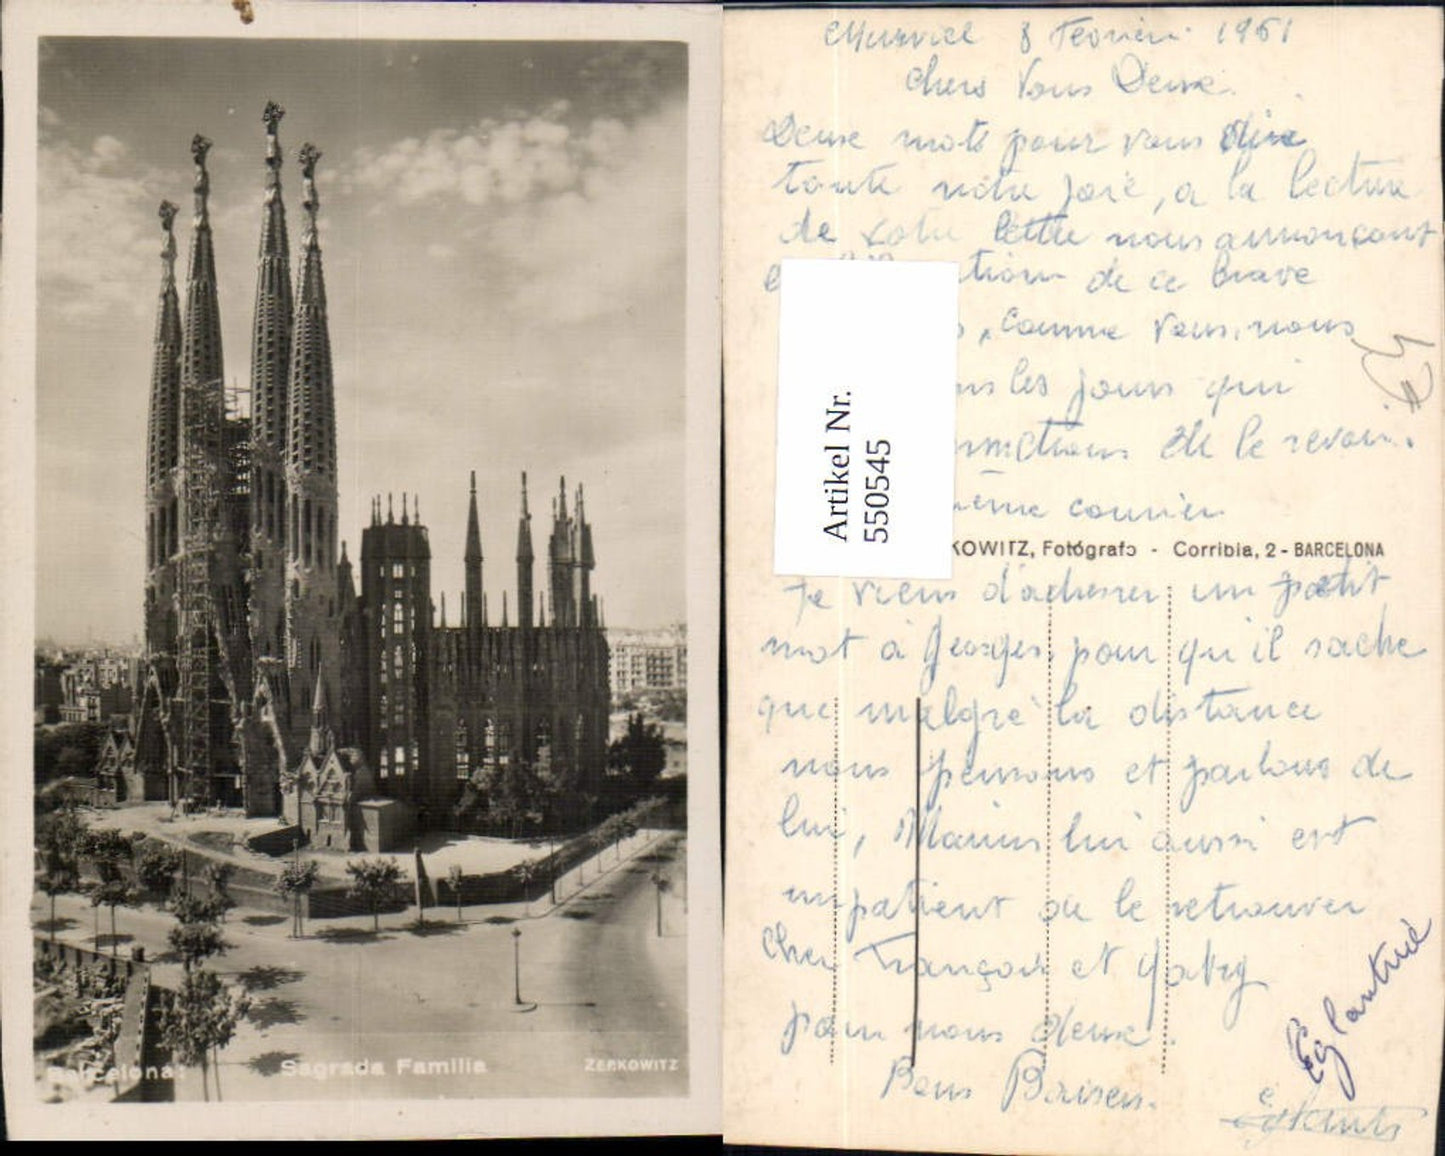 Barcelona:
Sagrada Familia
ZERKOWITZ
8 Fevrier 1951
Chers Vous Deux.
Deux mots pour vous dire
toute notre joie, a la lecture
de votre lettre nous annonçant
de ce brave
, comme vous, nous
les jours qui
de le revoir.
même courrier
KOWITZ, Fotógrafo - Corribia, 2 - BARCELONA
Je viens d'adresser un petit
mot à Georges pour qu'il sache
que malgré la distance
nous pensons et parlons de
lui, Marius lui aussi est
impatient de le retrouver
Cher François et Gaby
pour nous deux.
Bons Baisers.
Eglantine
Artikel Nr.
550545